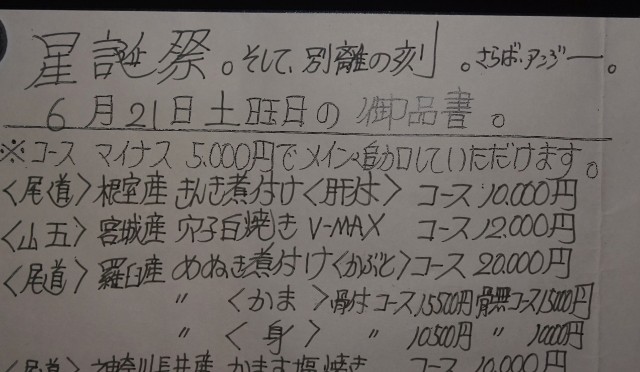 星誕祭。そして、別離の刻。さらば・アンジー。
6月21日土曜日の御品書。
※コース マイナス 5.000円でメイン追加していただけます。
〈尾道〉根室産 きんき煮付け〈肝付〉 コース 10.000円
〈山五〉宮城産 穴子白焼き V-MAX コース 12.000円
〈尾道〉羅臼産 めぬき煮付け〈かぶと〉コース 20.000円
〃 〈かま〉骨付コース15.500円 骨無コース15.000円
〃 〈身〉 〃 10.500円 〃 10.000円
〈尾道〉神奈川長井産 かます塩焼き コース 10.000円